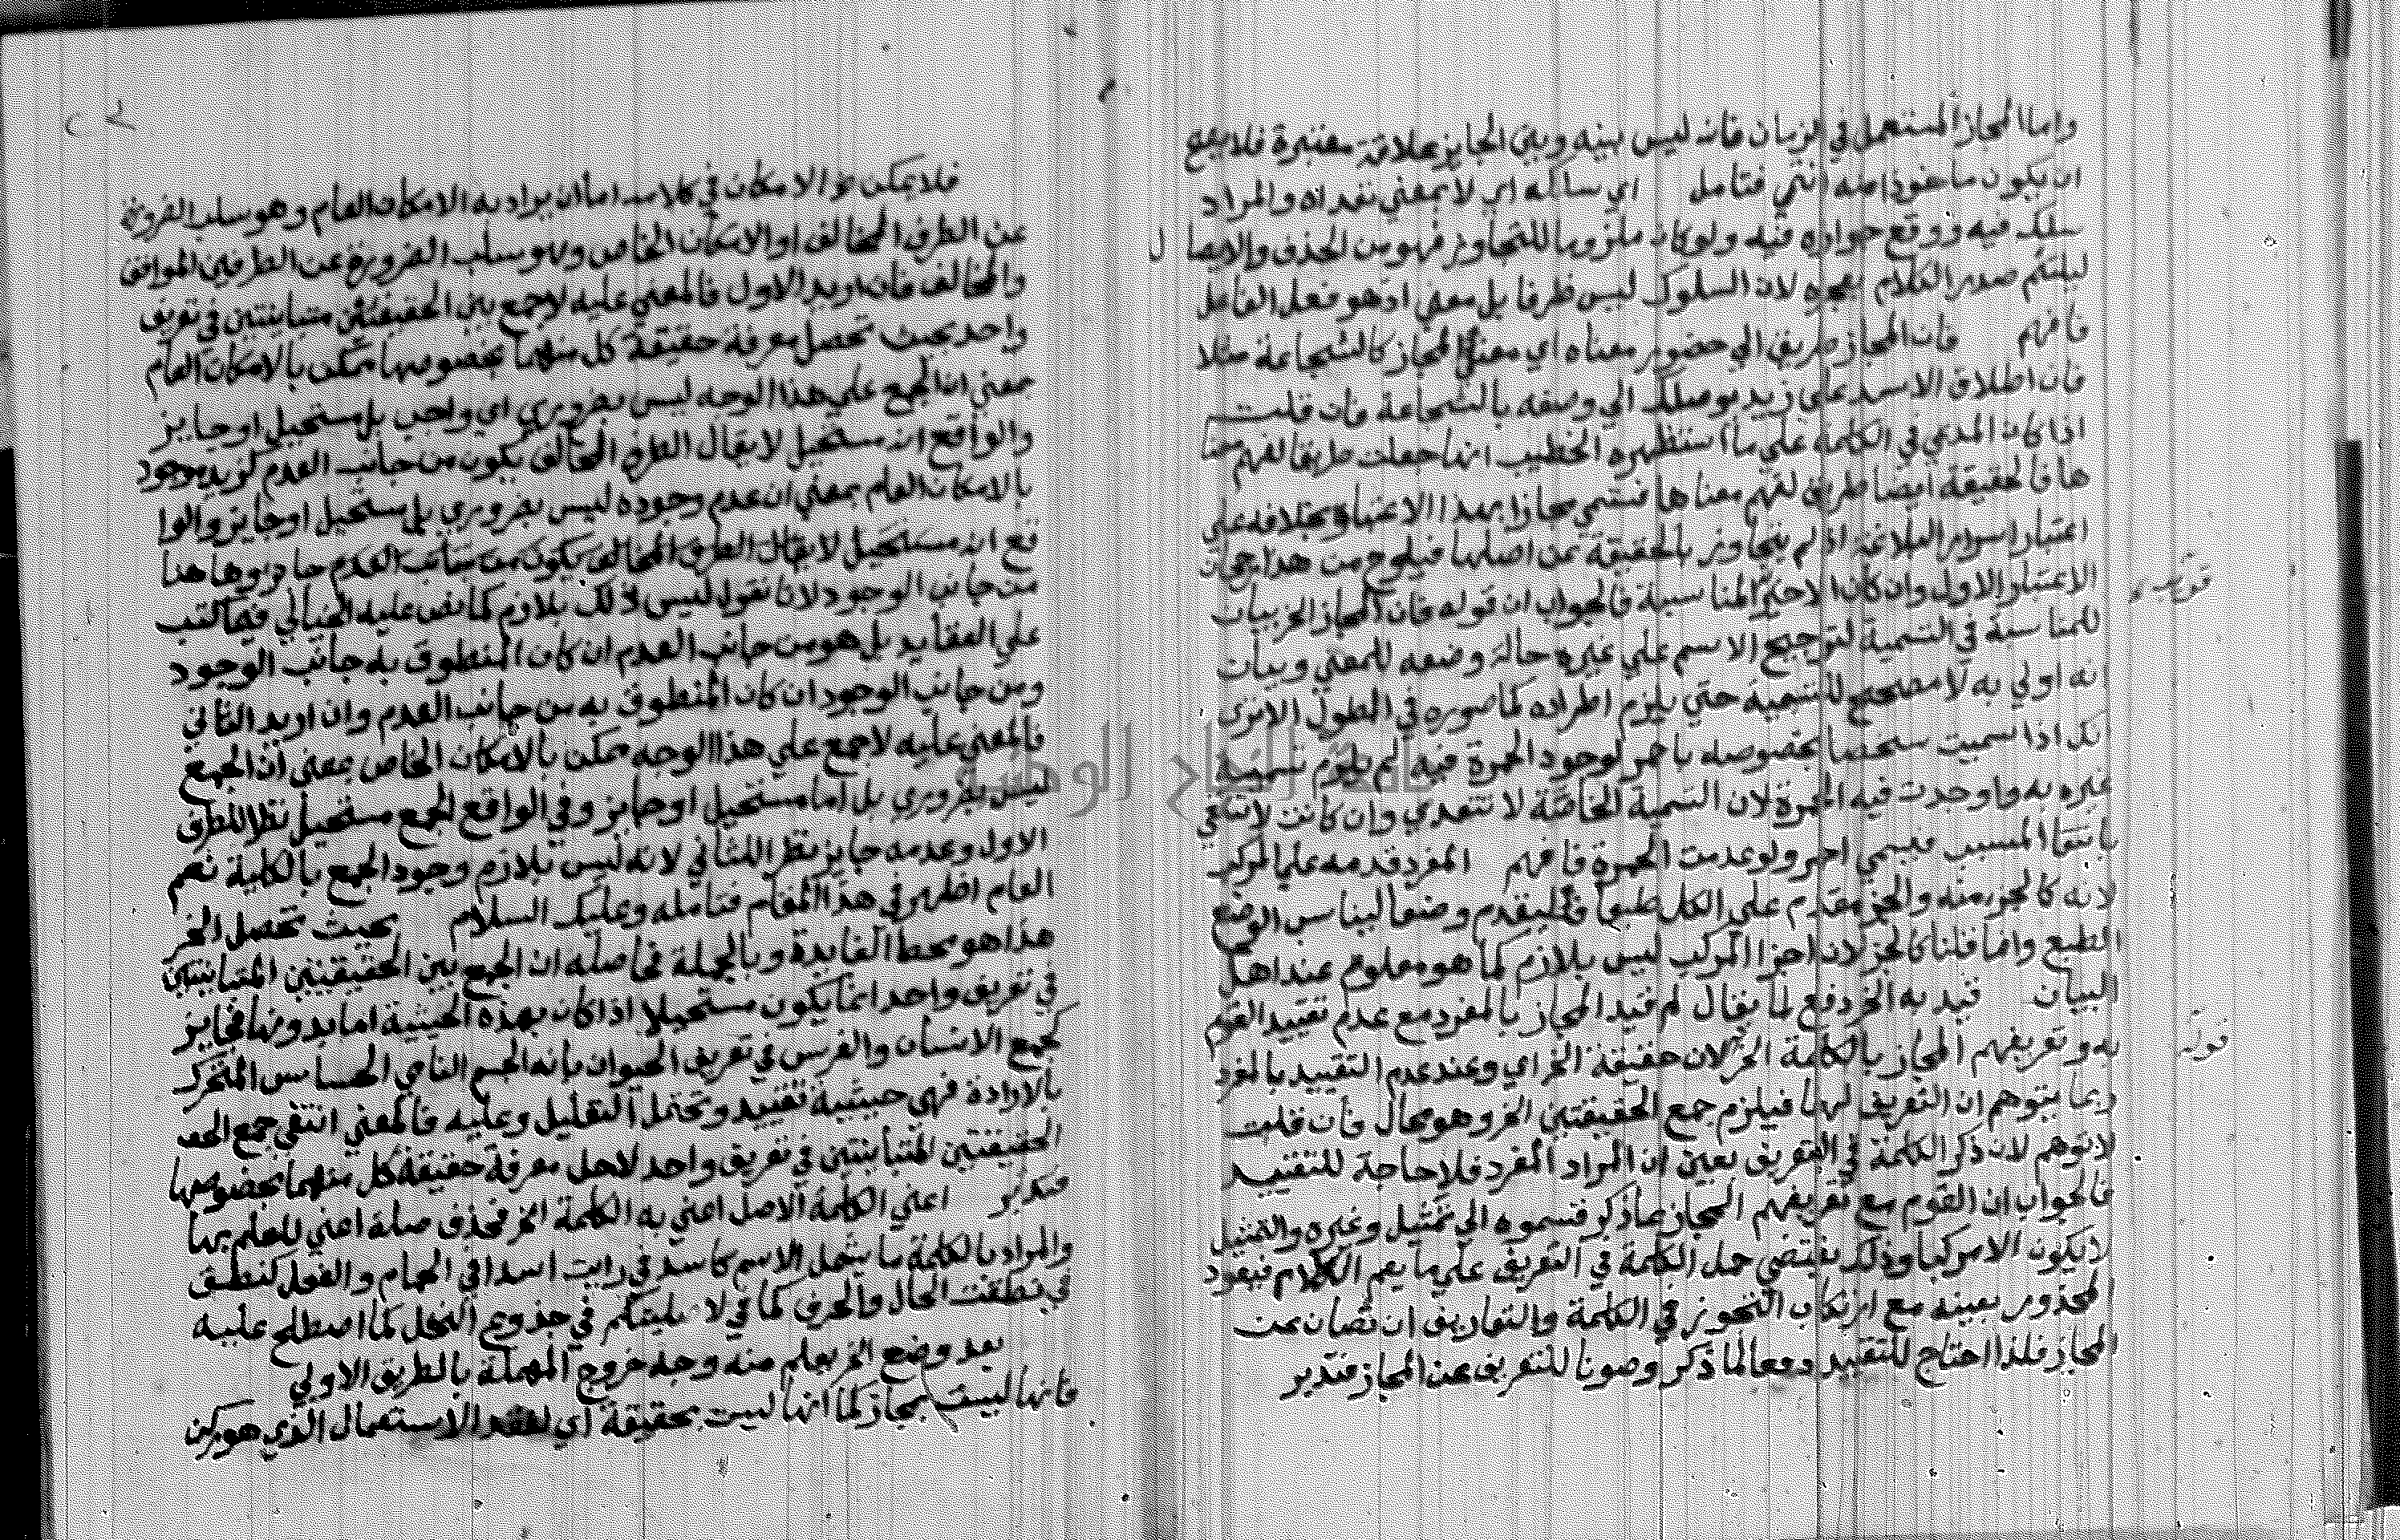 واما المجاز المستعمل في الزمان فانه ليس بينه وبين الجايز علاقة معتبرة فلا يصح
ان يكون ماخوذا منه انتهي فتامل اي سالكه اي لا بمعني تعداه والمراد
سلك فيه ووقع جوازه فيه ولو كان ملزوما للتجاوز فهو من الحذف والايصال
ليلتئم صدر الكلام بعجزه لان السلوك ليس ظرفا بل معني اذ هو فعل الفاعل
فافهم فان المجاز طريق الي حضور معناه اي معني المجاز كالشجاعة مثلا
فان اطلاق الاسد علي زيد يوصلك الي وصفه بالشجاعة فان قلت
اذا كان المدعي في الكلمة علي ما استظهره الخطيب انها جعلت طريقا لفهم معنا
ها فالحقيقة ايضا طريق لفهم معناها فتسمي مجازا بهذا الاعتبار بخلافه علي
اعتبار اسرار البلاغة اذ لم يتجاوز بالحقيقة عن اصلها فيلوح من هذا رجحان
الاعتبار الاول وان كان الاحتمالمناسبة فالجواب ان قوله فان المجاز الخ بيان
قوله
للمناسبة في التسمية لترجيح الاسم علي غيره حالة وضعه للمعني وبيان
انه اولي به لا مصحح للتسمية حتي يلزم اطراده كما صوره في المطول الا تري
انك اذا سميت شخصا بخصوصه باحمر لوجود الحمرة فيه لم يلزم تسمية
غيره به ولو وجدت فيه الحمرة لان التسمية الخاصة لا تتعدي وان كانت لا تنتفي
بانتفا المسبب فيسمي احمر ولو عدمت الحمرة فافهم المفرد قدمه علي المركب
لانه كالجزء منه والجزء مقدم علي الكل طبعا فليقدم وضعا ليناسب الوضع
الطبع وانما قلنا كالجزء لان اجزا المركب ليس بلازم كما هو معلوم عند اهل
البيان قيد به الخ دفع لما يقال لم قيد المجاز بالمفرد مع عدم تقييد القوم
قوله
به وتعريفهم المجاز بالكلمة الخ لان حقيقة الخ اي وعند عدم التقييد بالمفرد
ربما يتوهم ان التعريف لهما فيلزم جمع الحقيقتين الخ وهو محال فان قلت
لا توهم لان ذكر الكلمة في التعريف يعين ان المراد المفرد فلا حاجة للتقييد
فالجواب ان القوم مع تعريفهم المجاز بما ذكر قسموه الي تمثيل وغيره والتمثيل
لا يكون الا مركبا وذلك يقتضي حمل الكلمة في التعريف علي ما يعم الكلام فيعود
المحذور بعينه مع ارتكاب التجوز في الكلمة والتعاريف ان تصان عن
المجاز فلذا احتاج للتقييد دفعا لما ذكر وصونا للتعريف عن المجاز فتدبر
فلا يمكن الخ الامكان في كلامه اما ان يراد به الامكان العام وهو سلب الضرورة
عن الطرف المخالف او الامكان الخاص وهو سلب الضرورة عن الطرفين الموافق
والمخالف فان اريد الاول فالمعني عليه لا جمع بين الحقيقتين متباينتين في تعريف
واحد بحيث تحصل معرفة حقيقة كل منهما بخصوصها ممكن بالامكان العام
بمعني ان الجمع علي هذا الوجه ليس بضروري اي واجب بل مستحيل او جايز
والواقع انه مستحيل لا يقال الطرف المخالف يكون من جانب العدم كزيد موجود
بالامكان العام بمعني ان عدم وجوده ليس بضروري بل مستحيل او جايز والوا
قع انه مستحيل لا يقال الطرف المخالف يكون من جانب العدم وهاهنا
من جانب الوجود لانا نقول ليس ذلك بلازم كما نص عليه الخيالي فيما كتب
علي العقايد بل هو من جانب العدم ان كان المنطوق به جانب الوجود
ومن جانب الوجود ان كان المنطوق به من جانب العدم وان اريد الثاني
فالمعني عليه لا جمع علي هذا الوجه ممكن بالامكان الخاص بمعني ان الجمع
ليس بضروري بل اما مستحيل او جايز وفي الواقع الجمع مستحيل نظرا للطرف
الاول وعدمه جايز نظرا للثاني لانه ليس بلازم وجود الجمع بالكلية نعم
العام اظهر في هذا المقام فتامله وعليك السلام بحيث تحصل الخ
هذا هو محط الفايدة وبالجملة فحاصله ان الجمع بين الحقيقتين المتباينتين
في تعريف واحد انما يكون مستحيلا اذا كان بهذه الحيثية اما بدونها فجايز
كجمع الانسان والفرس في تعريف الحيوان بانه الجسم النامي الحساس المتحرك
بالارادة فهي حيثية تقييد وتحتمل التعليل وعليه فالمعني انتفي جمع الحقـ
الحقيقتين المتباينتين في تعريف واحد لاجل معرفة حقيقة كل منهما بخصوصها
فتدبر اعني الكلمة الاصل اعني به الكلمة الخ فحذف صلة اعني للعلم بها
والمراد بالكلمة ما يشمل الاسم كاسد في رايت اسدا في الحمام والفعل كنطق
في نطقت الحال والحرف كما في لاصلبنكم في جذوع النخل كما اصطلح عليه
بعد وضع الخ يعلم منه وجه خروج المهملة بالطريق الاولي
فانها ليست بمجاز كما انها ليست بحقيقة اي لفقد الاستعمال الذي هو ركن
جامعة النجاح الوطنية